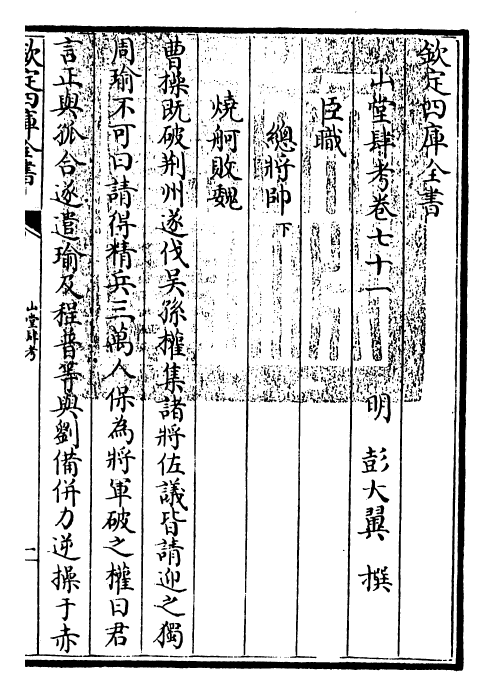 欽定四庫全書
山堂肆考卷七十一　明　彭大翼　撰
臣職
總將帥下
燒舸敗魏
曹操既破荆州遂伐吳孫權集諸將佐議皆請迎之獨
周瑜不可曰請得精兵三萬人保為將軍破之權曰君
言正與孤合遂遣瑜及程普等與劉備併力逆操于赤
欽定四庫全書
山堂肆考
一